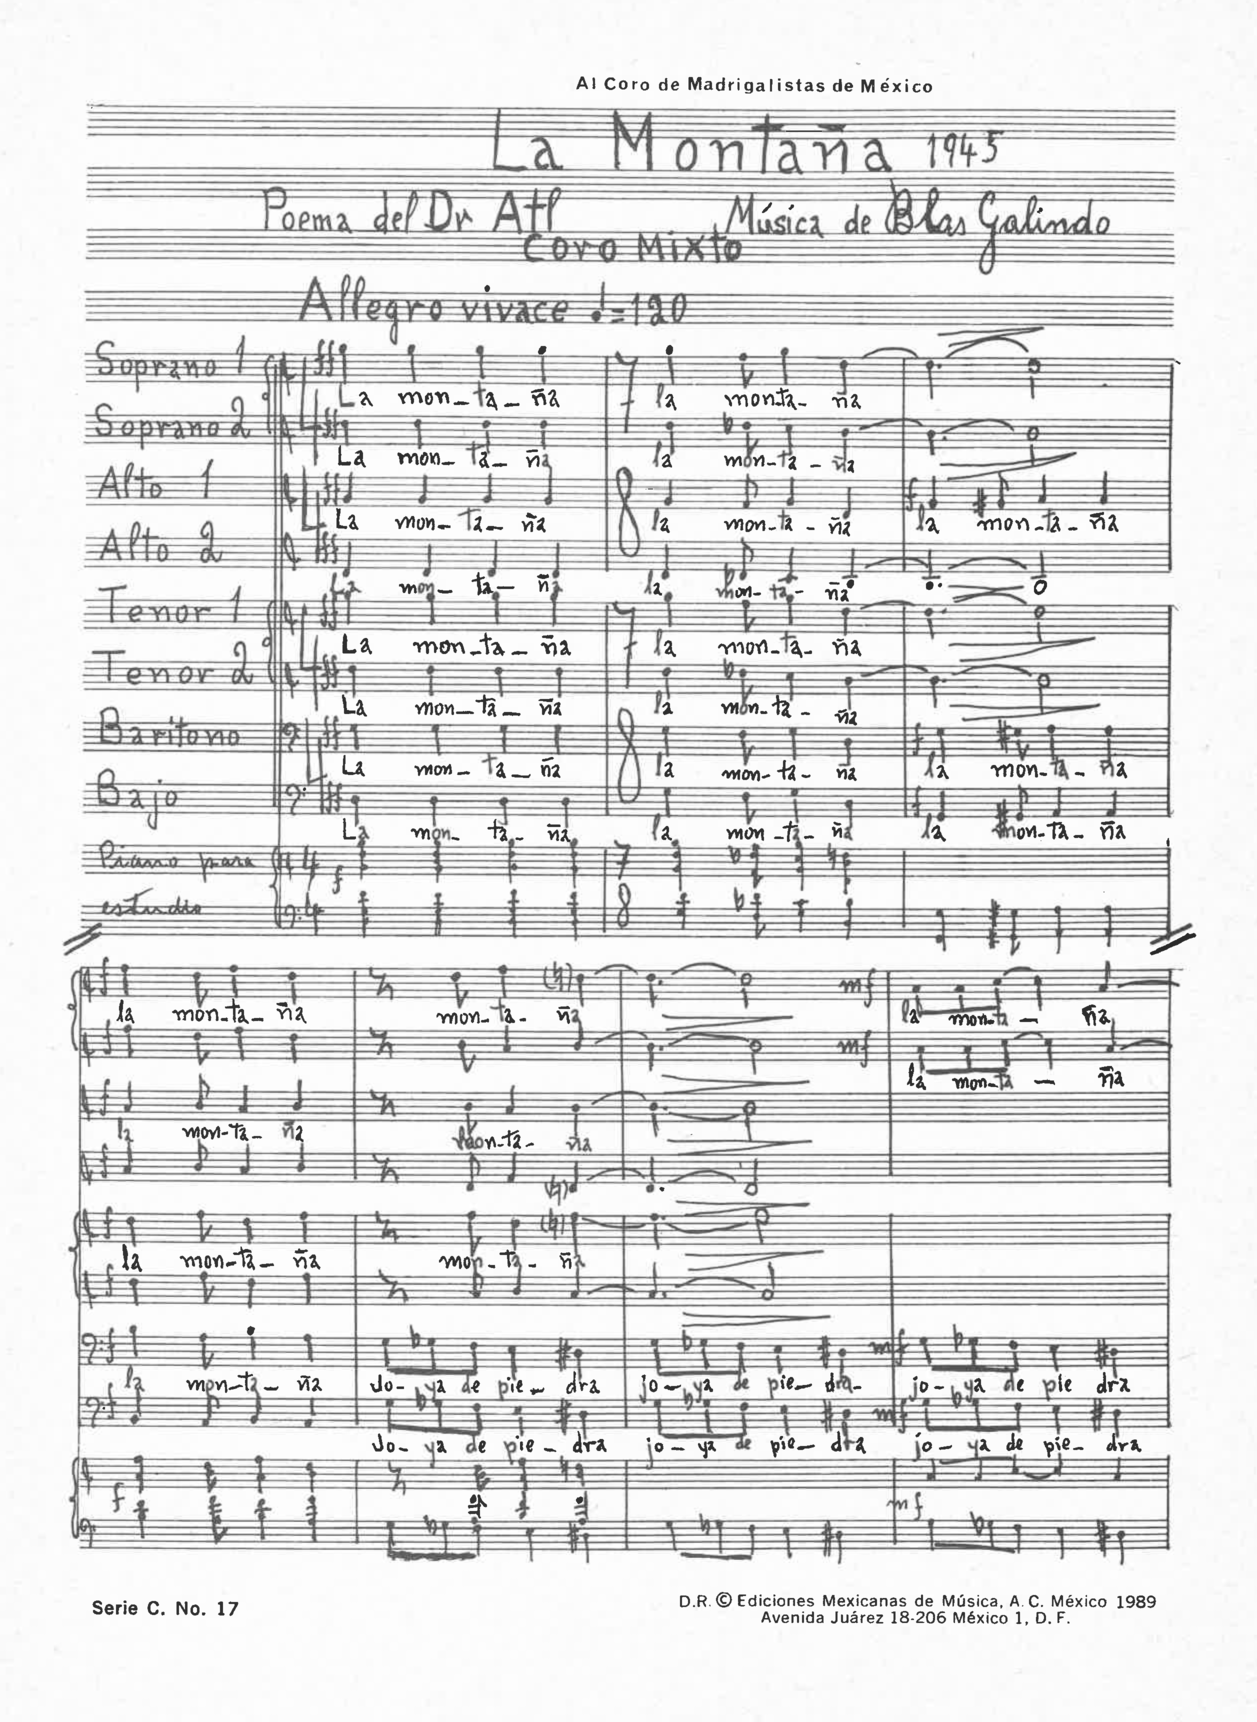 Al Coro de Madrigalistas de México
La Montaña 1945
Poema del Dr Atl Música de Blas Galindo
Coro Mixto
Allegro vivace ♩=120
Soprano 1
La mon-ta-ña la mon-ta-ña
Soprano 2
La mon-ta-ña la mon-ta-ña
Alto 1
La mon-ta-ña la mon-ta-ña f la mon-ta-ña
Alto 2
La mon-ta-ña la mon-ta-ña
Tenor 1
La mon-ta-ña la mon-ta-ña
Tenor 2
La mon-ta-ña la mon-ta-ña
Baritono
La mon-ta-ña la mon-ta-ña f la mon-ta-ña
Bajo
La mon-ta-ña la mon-ta-ña f la mon-ta-ña
Piano para
f
estudio
mf
la mon-ta-ña mon-ta-ña la mon-ta-ña
mf
la mon-ta-ña
la mon-ta-ña mon-ta-ña
la mon-ta-ña mon-ta-ña
mf
la mon-ta-ña Jo-ya de pie-dra jo-ya de pie-dra- jo-ya de pie dra
mf
Jo-ya de pie-dra jo-ya de pie-dra jo-ya de pie-dra
f mf
Serie C. No. 17
D.R. © Ediciones Mexicanas de Música, A. C. México 1989
Avenida Juárez 18-206 México 1, D. F.